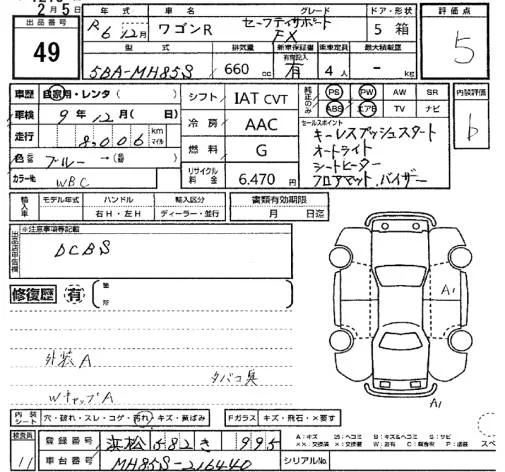 2月5日
出品番号
49
年式 車名 グレード ドア・形状
R6年12月 ワゴンR セーフティサポート FX 5 箱
評価点
5
型式 排気量 新車保証書 乗車定員 最大積載量
有無記入
5BA-MH85S 660 cc 有 4人 - kg
車歴 自家用・レンタ( )
シフト IAT CVT
純正のみ
PS PW AW SR
ABS エアB TV ナビ
内装評価
b
車検 9年12月( 日)
冷房 AAC
セールスポイント
キーレスプッシュスタート
オートライト
シートヒーター
フロアマット.バイザー
走行 8,006 km マイル
燃料 G
色 ブルー → ( )
カラー№ WBC
リサイクル料金 6.470円
輸入車 モデル年式 ハンドル 輸入区分 書類有効期限
右H・左H ディーラー・並行 月 日迄
出品店申告欄
※注意事項等記載
DCBS
修復歴 有 箇所
外装A
タバコ臭
WキャップA
A1
A1
内装シート 穴・破れ・スレ・コゲ・汚れ・キズ・黄ばみ Fガラス キズ・飛石・×要す
検査員
11
登録番号 浜松582き 995
車台番号 MH85S-216440 シリアル№